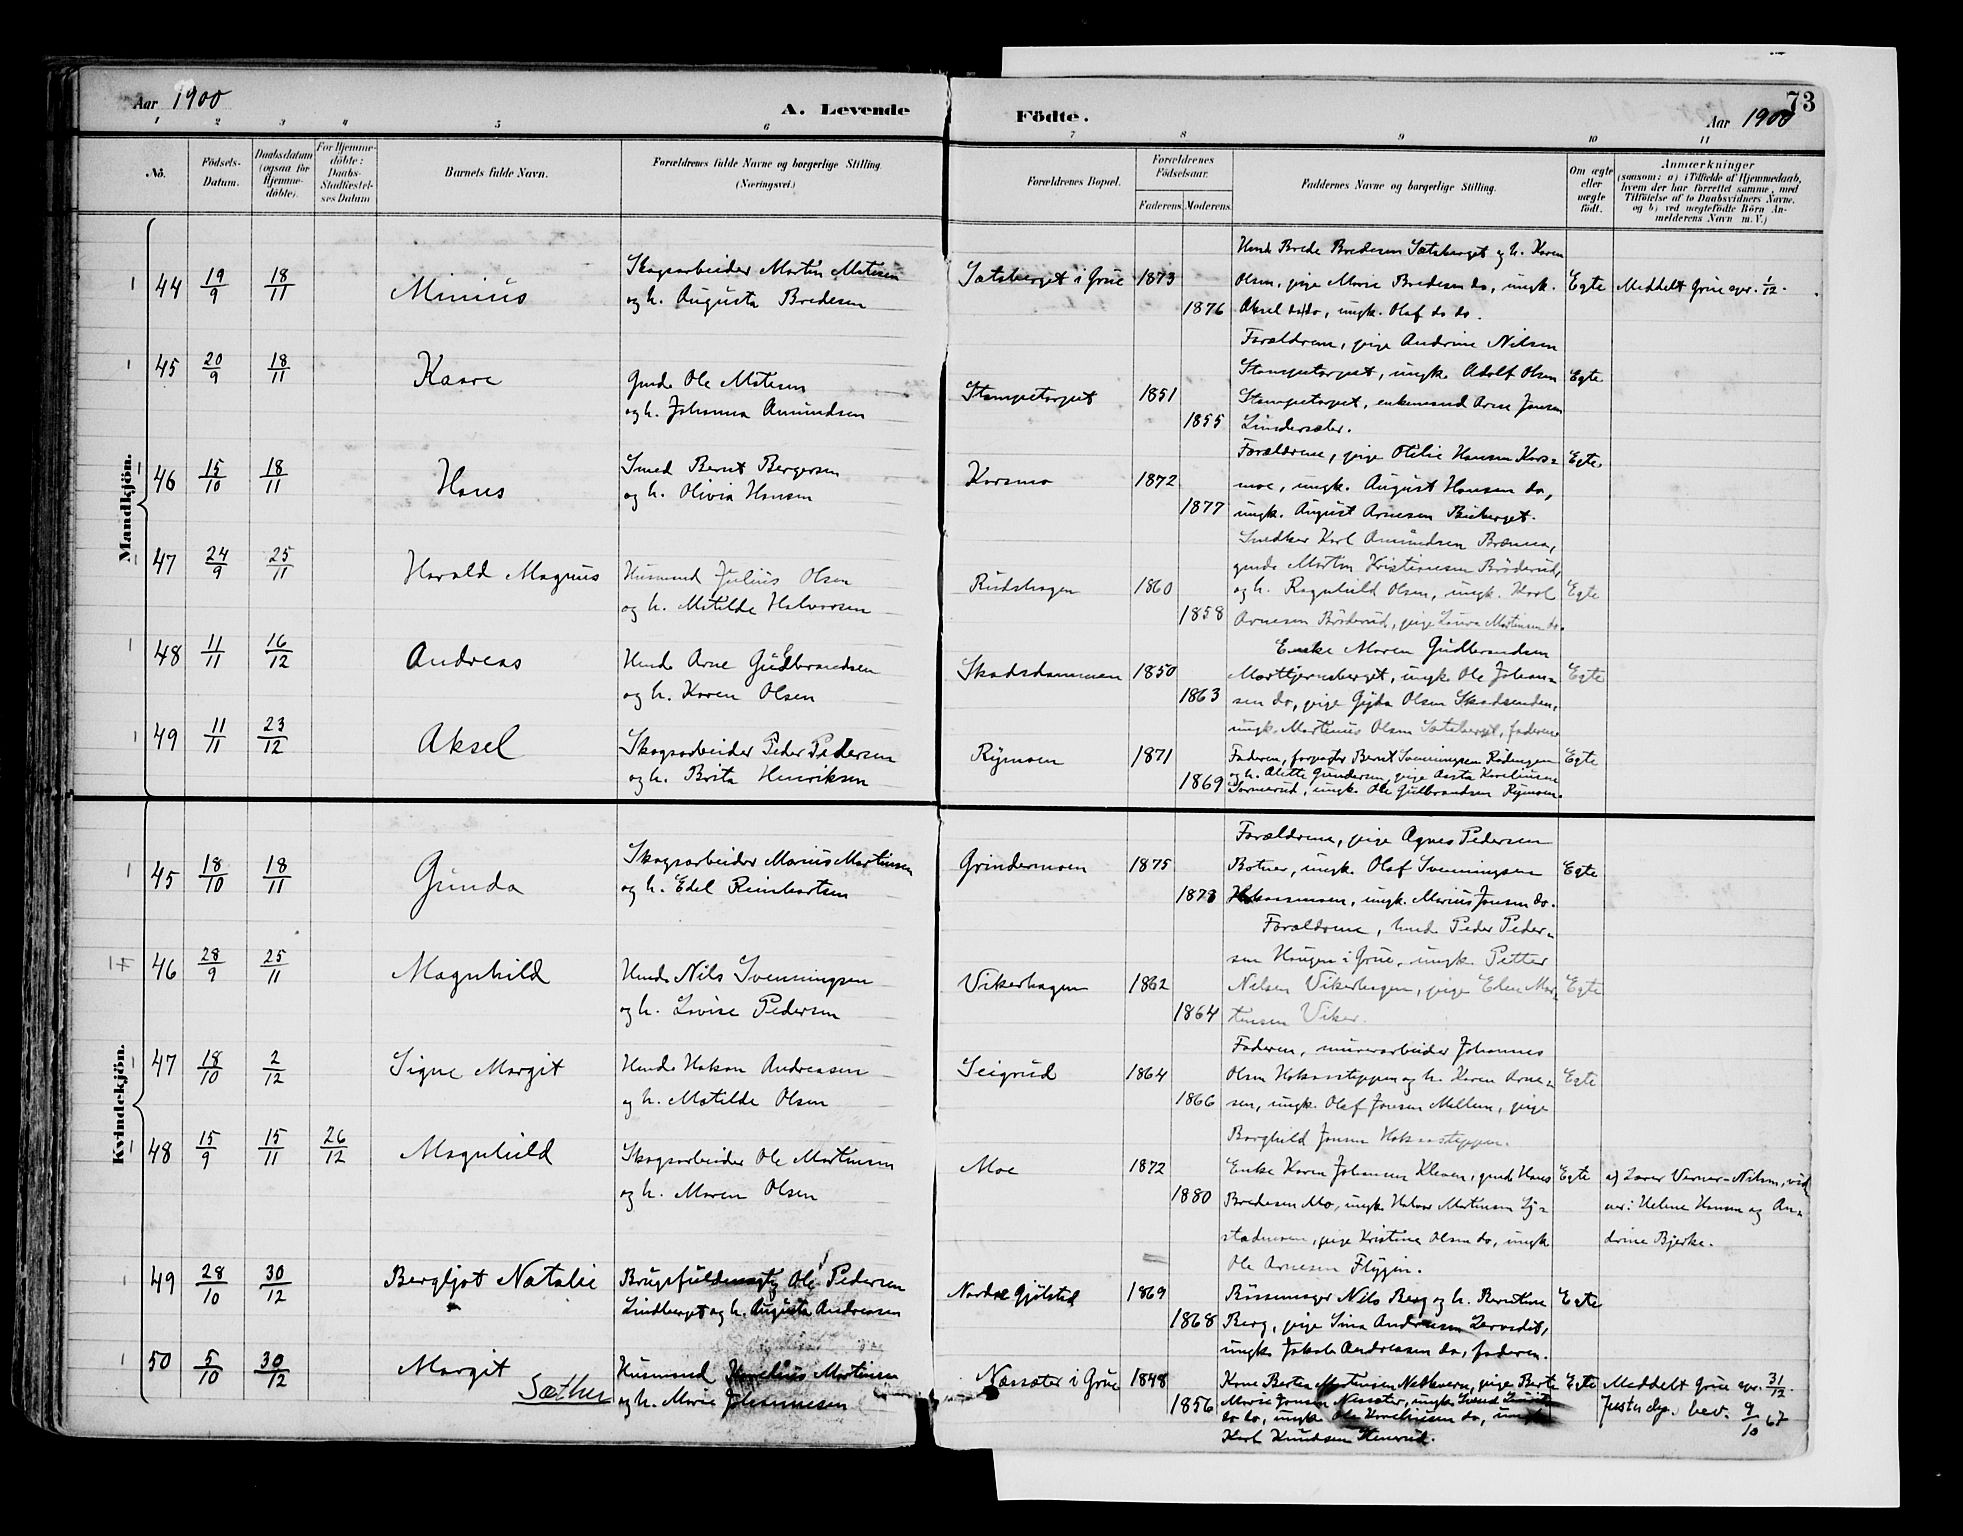 73
Aar 1900
A. Levende
Födte.
Aar 1900
1 2 3 4 5 6 7 8 9 10 11
No.
Födsels-
Datum.
Daabsdatum
(ogsaa for
Hjemme-
döbte).
For Hjemme-
döbte:
Daabs-
Stadfæstel-
ses Datum
Barnets fulde Navn.
Forældrenes fulde Navne og borgerlige Stilling
(Næringsvei.)
Forældrenes Bopæl.
Forældrenes
Födselsaar.
Faderens Moderens
Faddernes Navne og borgerlige Stilling.
Om ægte
eller
uægte
födt.
Anmærkninger
(saasom: a) i Tilfælde af Hjemmedaab,
hvem der har forrettet samme, med
Tilföielse af to Daabsvidners Navne,
og b) ved uægtefödte Börn An-
melderens Navn m. V.)
Mandkjön.
Husm. Brede Bredesen Sætsberget og h. Karen
44 19/9 18/11 Minius Skogsarbeider Martin Matisen Sætsberget i Grue 1873 Olsen, pige Marie Bredesen do, ungk. Egte Meddelt Grue spr. 1/12.
og h. Augusta Bredesen 1876 Aksel do do, ungk. Olaf do do.
Forældrene, pige Andrine Nilsen
45 20/9 18/11 Kaare Gmd. Ole Matisen Stampetorpet, ungk. Adolf Olsen Egte
og h. Johanna Amundsen Stampetorpet 1851 Stampetorpet, enkemand Arne Jonsen
1855 Lindersæter.
Forældrene, pige Otilie Hansen Kors- Egte.
46 15/10 18/11 Hans Smed Bernt Bergersen Korsmo 1872 moe, ungk. August Hansen do,
og h. Olivia Hansen 1877 ungk. August Arnesen
Snedker Karl Amundsen Brænna,
47 24/9 25/11 Harald Magnus Husmand Julius Olsen gmd. Martin Kristiansen Bröderud,
og h. Matilde Halvorsen Rudshagen 1860 og h. Ragnhild Olsen, ungk. Karl Egte
1858 Arnesen Bröderud, pige Laura Martinsen do.
Enke Maren Gudbrandsen
48 11/11 16/12 Andreas Husm. Arne Gudbrandsen Skadsdammen 1850 ungk. Ole Johan- Egte
og h. Karen Olsen 1863 sen do, pige Gyda Olsen
ungk. Martinus Olsen Sætsberget, faderen
49 11/11 23/12 Aksel Skogsarbeider Peder Pedersen Rymoen 1871 Faderen, forpagter Bernt Svenningsen Egte
og h. Brita Henriksen 1869 og h. Alette Gundersen, pige Aasta Karelinsen
ungk. Ole Gulbrandsen Rymoen.
Kvindekjön.
Forældrene, pige Agnes Pedersen
45 18/10 18/11 Gunda Skogsarbeider Marius Martinsen Grindermoen 1875 Botner, ungk. Olaf Svenningsen Egte
og h. Edel Reinhartsen 1873 ungk. Marius Jonsen do.
Forældrene, husm. Peder Peder-
46 28/9 25/11 Magnhild Husm. Nils Svenningsen sen Haugen i Grue, ungk. Petter
og h. Lovise Pedersen Vikerhagen 1862 Nilsen Vikerhagen, pige Elen Mar- Egte
1864 tinsen Viker.
Faderen, murerarbeider Johannes
47 18/10 2/12 Signe Margit Husm. Hakon Andreasen Seigrud 1864 Olsen Hokaasteppen og h. Karen Arne- Egte
og h. Matilde Olsen 1866 sen, ungk. Olaf Jonsen Mellem, pige
Borghild Jonsen Hokaasteppen.
48 15/9 15/11 26/12 Magnhild Skogsarbeider Ole Martinsen Moe 1872 Enke Karen Johansen Kleven, gmd. Hans Egte a) Lærer Verner-Nilsen, vid-
og h. Maren Olsen 1880 Bredesen Mo, ungk. Halvor Martinsen Lj- ner: Helene Hansen og An-
stadmoen, pige Kristine Olsen do, ungk. drine Bjerke.
Ole Arnesen Flygin.
49 28/10 30/12 Bergljot Natalie Brugsfuldmægtig Ole Pedersen Nordre Gjölstad 1869 Bössemager Nils Berg og h. Berntine Egte
Lindberget og h. Augusta Andreasen 1868 Berg, pige Sina Andreasen
ungk. Jakob Andreasen do, faderen.
50 5/10 30/12 Margit Husmand Karelius Martinsen Næssæter i Grue 1848 Kone Berte Martinsen pige Berte Egte Meddelt Grue spr. 31/12.
Sæther og h. Marie Johannesen 1856 Marie Jonsen Næssæter, ungk. Just. dep. bev. 9/10 67
do do, ungk. Ole Karelinsen do, ungk.
Karl Knudsen